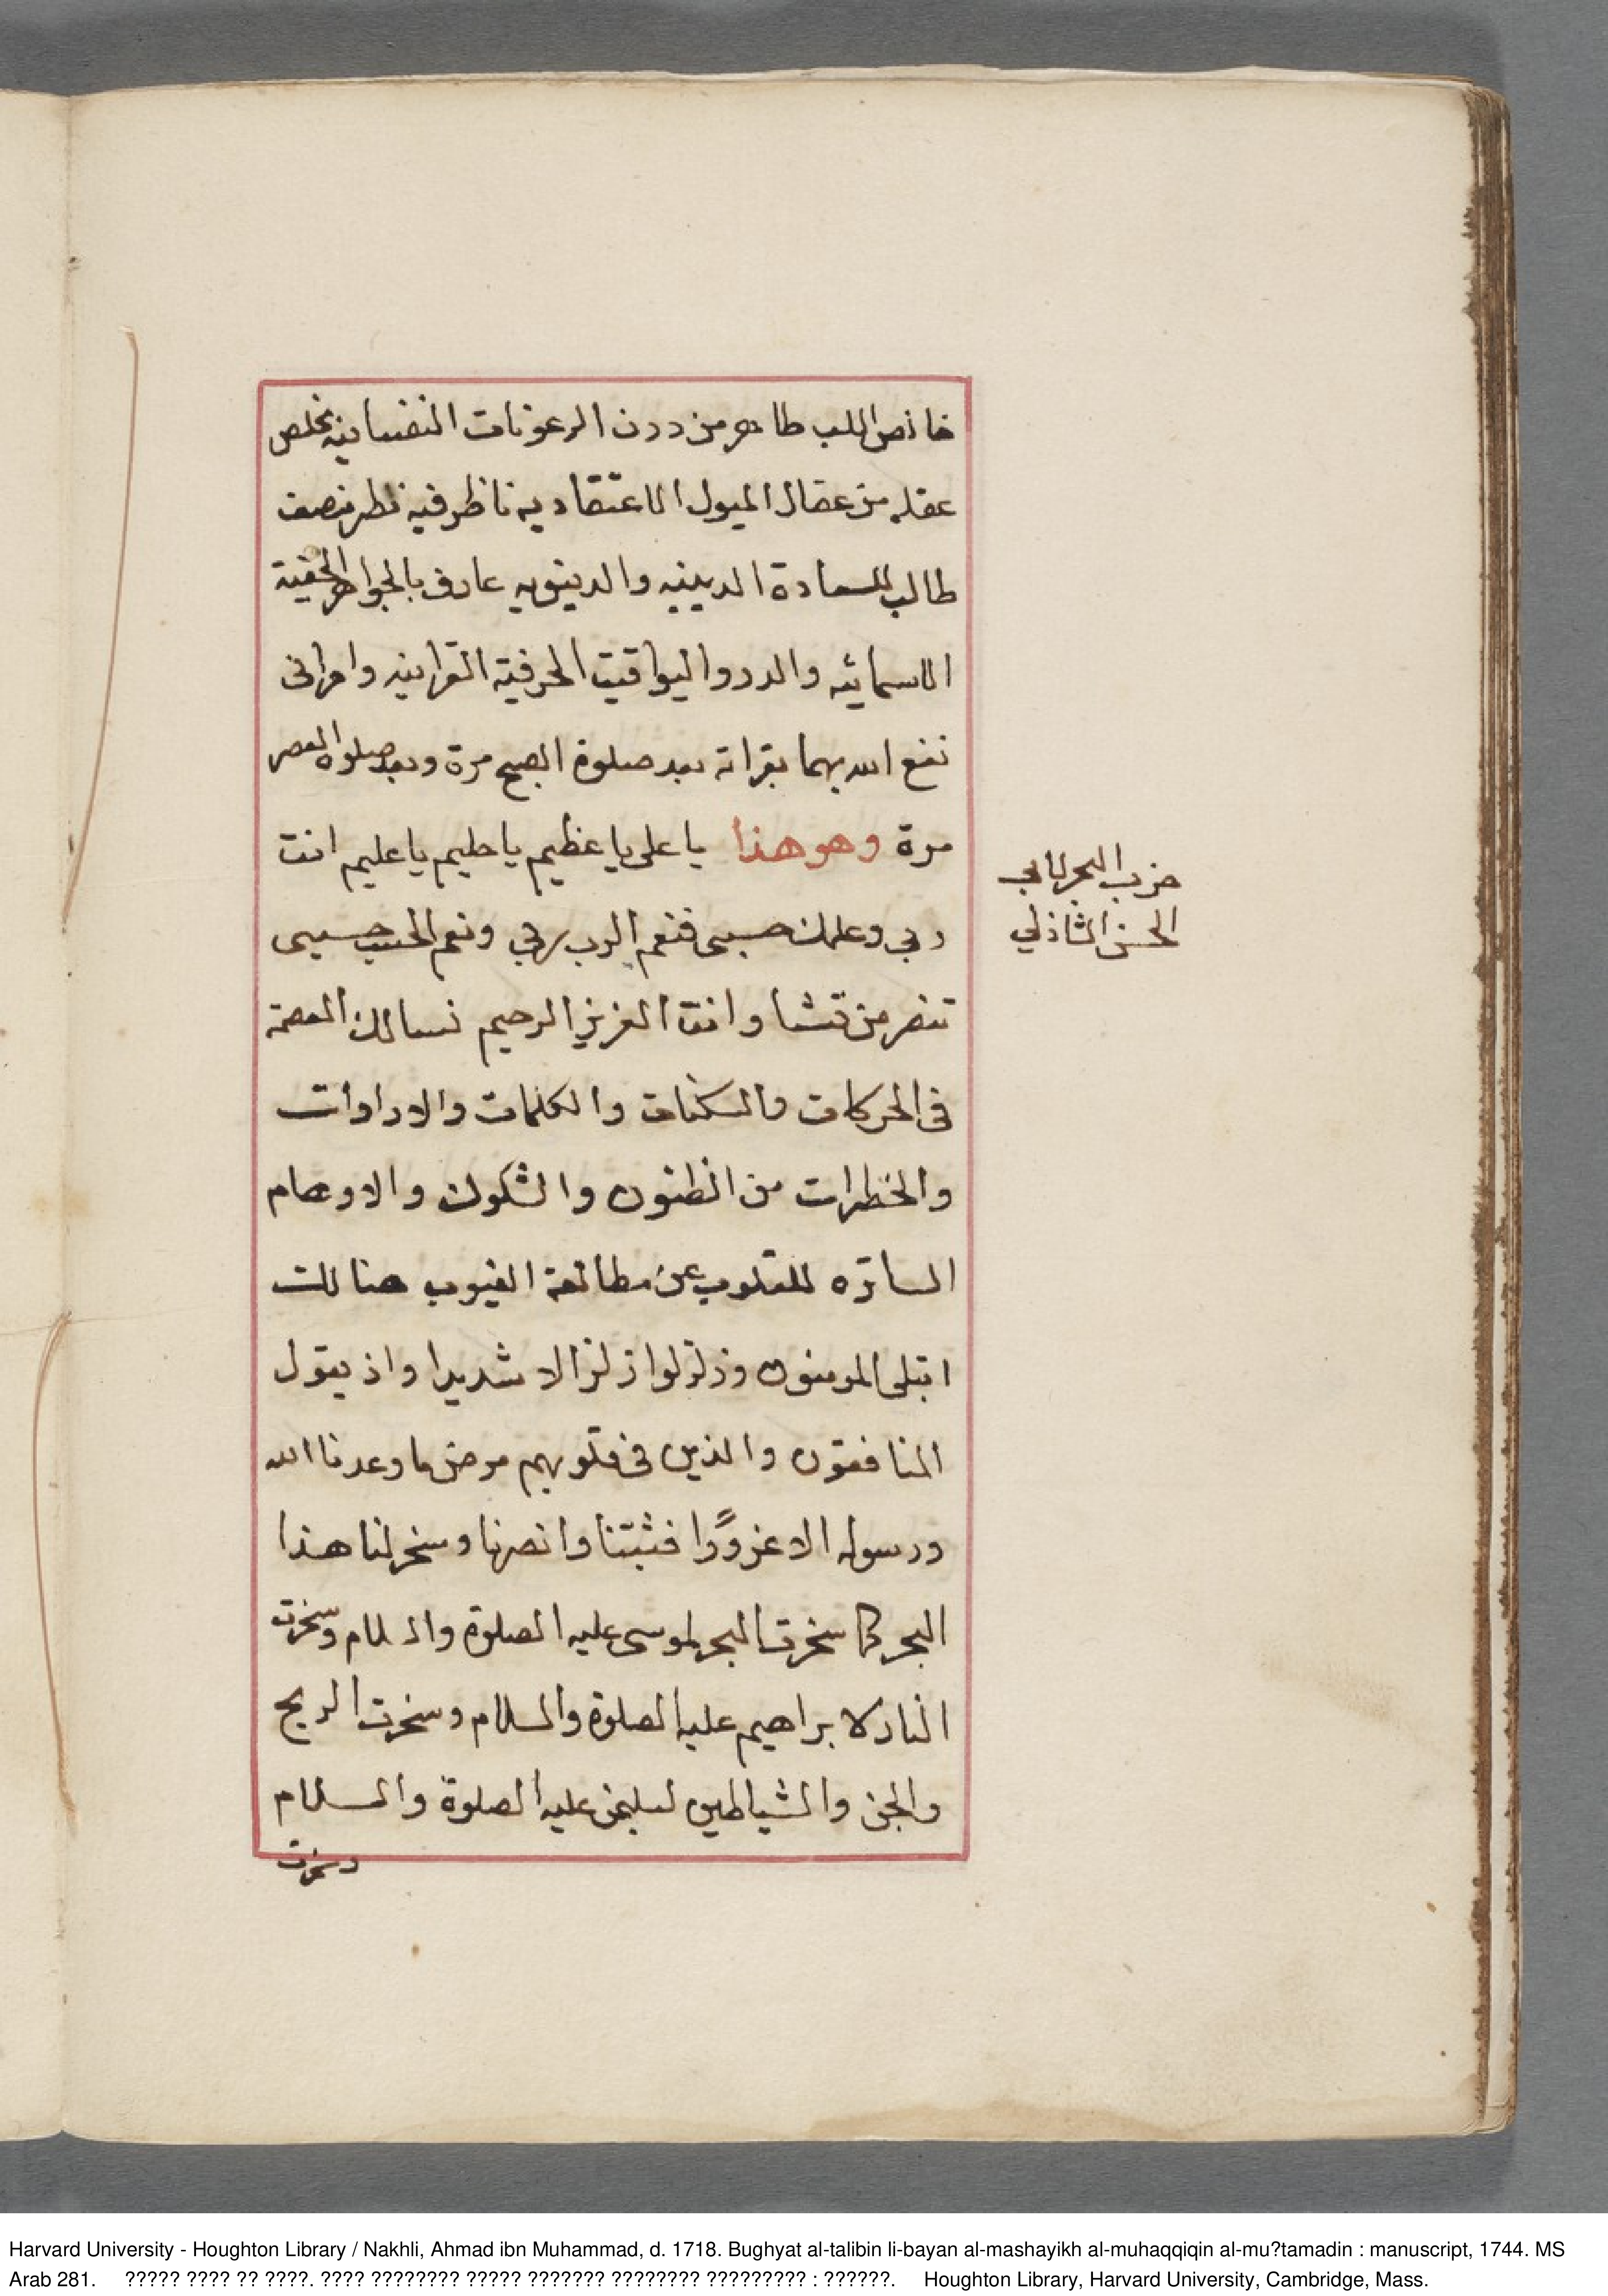 خالص اللب طاهر من درن الرعونات النفسانية مخلص
عقله من عقال الميول الاعتقاديه ناظر فيه نظر منصف
طالب للسعادة الدينيه والدنيويه عارف بالجواهر الحقية
الاسمائيه والدرر واليواقيت الحرفية القرانيه وامرانى
نفع الله بهما بقراته بعد صلوة الصبح مرة وبعد صلوة العصر
مرة وهو هذا يا على يا عظيم يا حليم يا عليم انت
ربي وعلمك حسبى فنعم الرب ربي ونعم الحسب حسبى
تنصر من تشا وانت العزيز الرحيم نسالك العصمة
فى الحركات والسكنات والكلمات والارادات
والخطرات من الظنون والشكوك والاوهام
الساتره للقلوب عن مطالعة الغيوب هنالك
ابتلى المومنون وزلزلوا زلزالا شديدا واذ يقول
المنافقون والذين فى قلوبهم مرض ما وعدنا الله
ورسوله الا غرورًا فثبتنا وانصرنا وسخر لنا هذا
البحر كما سخرت البحر لموسى عليه الصلوة والسلام وسخرت
النار لابراهيم عليه الصلوة والسلام وسخرت الريح
والجن والشياطين لسليمن عليه الصلوة والسلام
وسخرت
حزب البحر لابي
الحسن الشاذلي
Harvard University - Houghton Library / Nakhli, Ahmad ibn Muhammad, d. 1718. Bughyat al-talibin li-bayan al-mashayikh al-muhaqqiqin al-mu?tamadin : manuscript, 1744. MS
Arab 281. ????? ???? ?? ????. ???? ???????? ????? ??????? ???????? ????????? : ??????. Houghton Library, Harvard University, Cambridge, Mass.